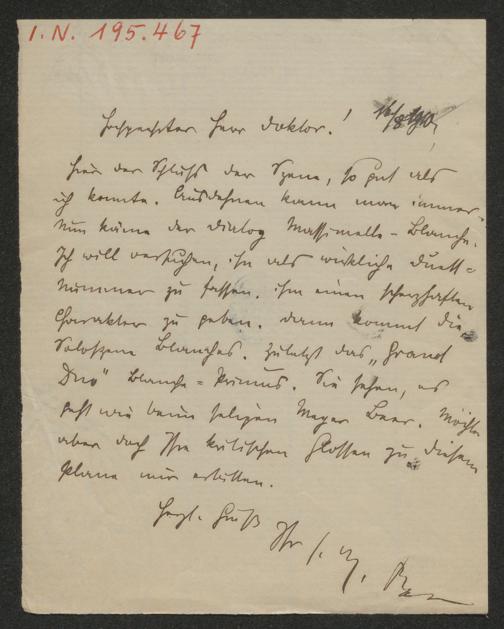 I.N. 195.467
16/8 1910
Hochgeehrter Herr Doktor!
Hier der Schluß der Szene, so gut als
ich konnte. Ausdehnen kann man immer.
Nun käme der Dialog Massimelle - Blanche.
Ich will versuchen, ihn als wirkliche Duett-
nummer zu fassen. ihm einen scherzhaften
Charakter zu geben. dann kommt die
Soloszene Blanches. Zuletzt das "Grand
Duo" Blanche = Primus. Sie sehen, es
geht wie beim seligen Meyer Beer. Möchte
aber doch Ihre kritischen Glossen zu diesem
Plane mir erbitten.
Herzl. Gruß
Ihr